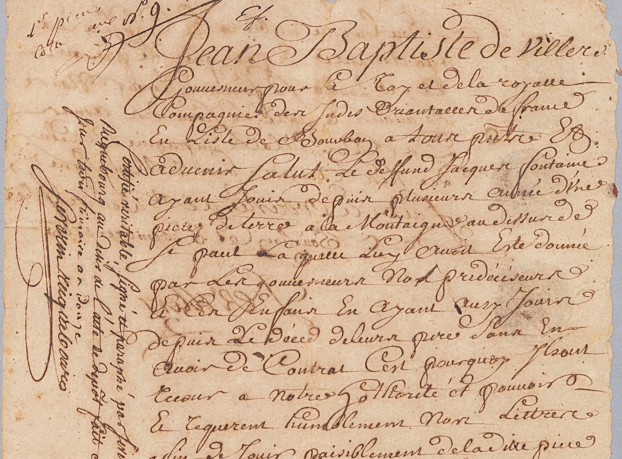 N.° 9.
Jean Baptiste de Villers
Gouverneur pour Le Roy et de la royalle
Compagnie des Indes Oriantalles de france
En Lisle de Bourbon a tous presens Et
advenir Salut. Le deffund Jacques fontaine
Ayant Jouis depuis plusieurs année d'une
piece de terre a la Montaigne au dessus de
St paul Laquelle Luy avoit Esté donnée
par Les gouverneurs Nos predeciseurs
Et ses Enfans En ayant aussy Jouis
depuis Le déced de leurs pere Sans En
avoir de Contrat C'est pourquoy Ilsont
Recour a Notre Hothorité et pouvoir
Et requerent humblement Nos Lettres
afin de Jouir paisiblement de la dite piece
Certifié véritable signé et paraphé par
au désir de l'acte de dépot fait